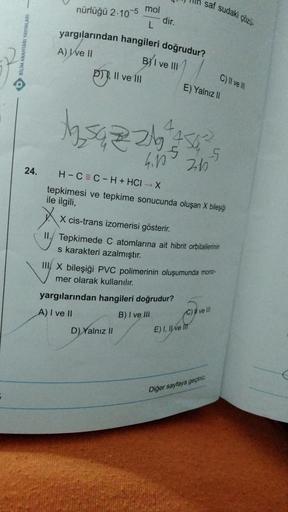 saf sudaki çözü
nürlüğü 2·10⁻⁵ mol/L dir.
yargılarından hangileri doğrudur?
A) I ve II
B) I ve III
C) II ve III
D) I, II ve III
E) Yalnız II
24.
H – C ≡ C – H + HCl → X
tepkimesi ve tepkime sonucunda oluşan X bileşiği
ile ilgili,
I. X cis-trans izomerisi gösterir.
II. Tepkimede C atomlarına ait hibrit orbitallerinin
s karakteri azalmıştır.
III. X bileşiği PVC polimerinin oluşumunda mono-
mer olarak kullanılır.
yargılarından hangileri doğrudur?
A) I ve II
B) I ve III
C) II ve III
D) Yalnız II
E) I, II ve III
Diğer sayfaya geçiniz.
BİLİM ANAHTARI YAYINLARI